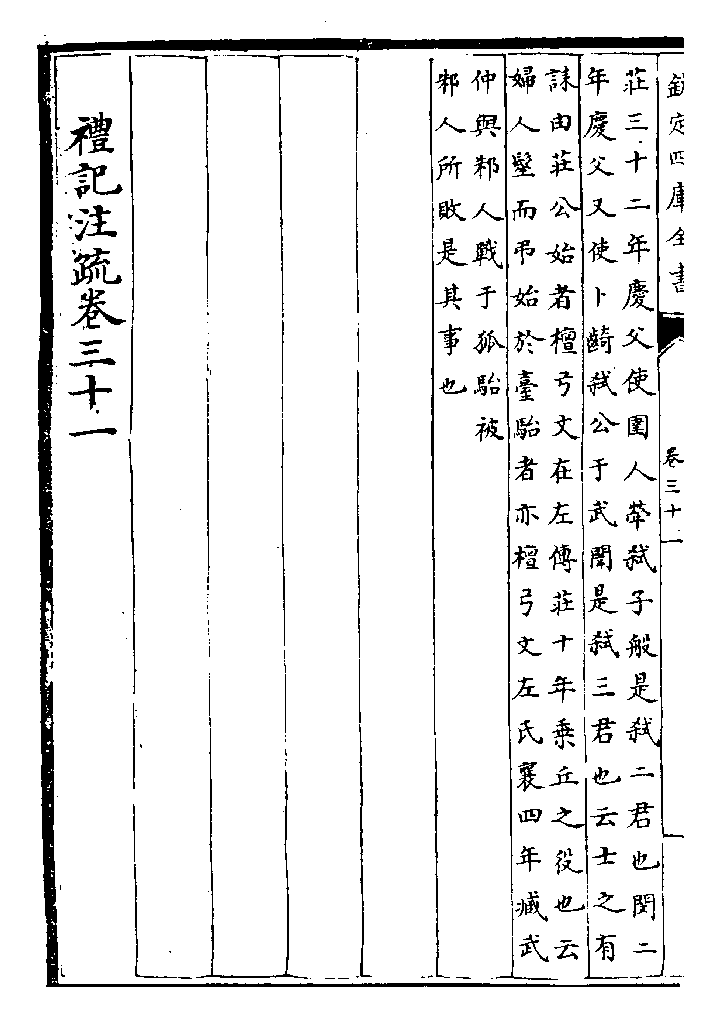 欽定四庫全書
卷三十一
莊三十二年慶父使圉人犖弑子般是弑二君也閔二
年慶父又使卜齮弑公于武闈是弑三君也云士之有
誄由莊公始者檀弓文在左傳莊十年乘丘之役也云
婦人髽而弔始於臺駘者亦檀弓文左氏襄四年臧武
仲與邾人戰于狐駘被
邾人所敗是其事也
禮記注疏卷三十一